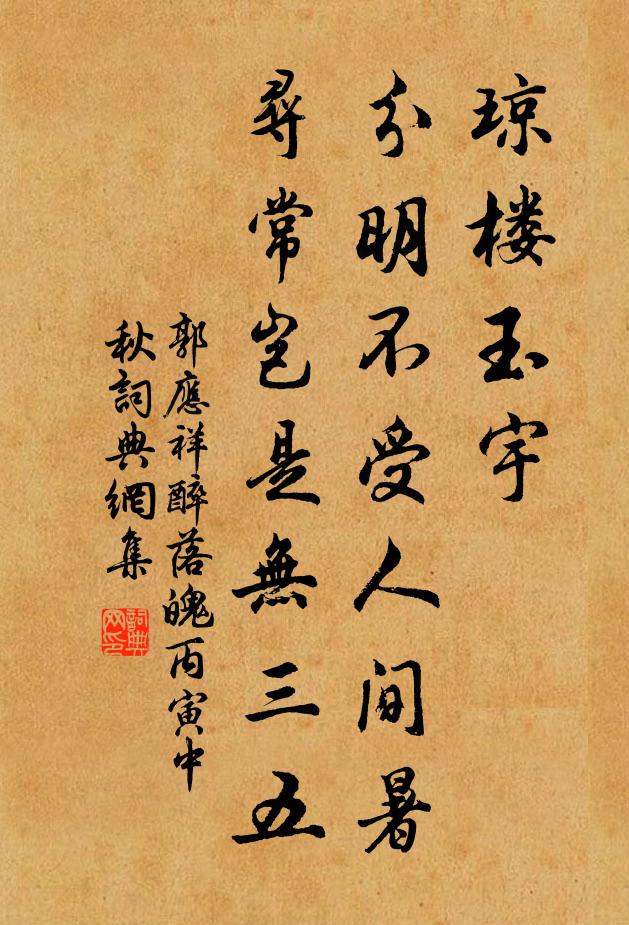 琼楼玉宇
分明不受人间暑
尋常岂是無三五
郭應祥醉落魄丙寅中
秋詞典網集
詞典
网印